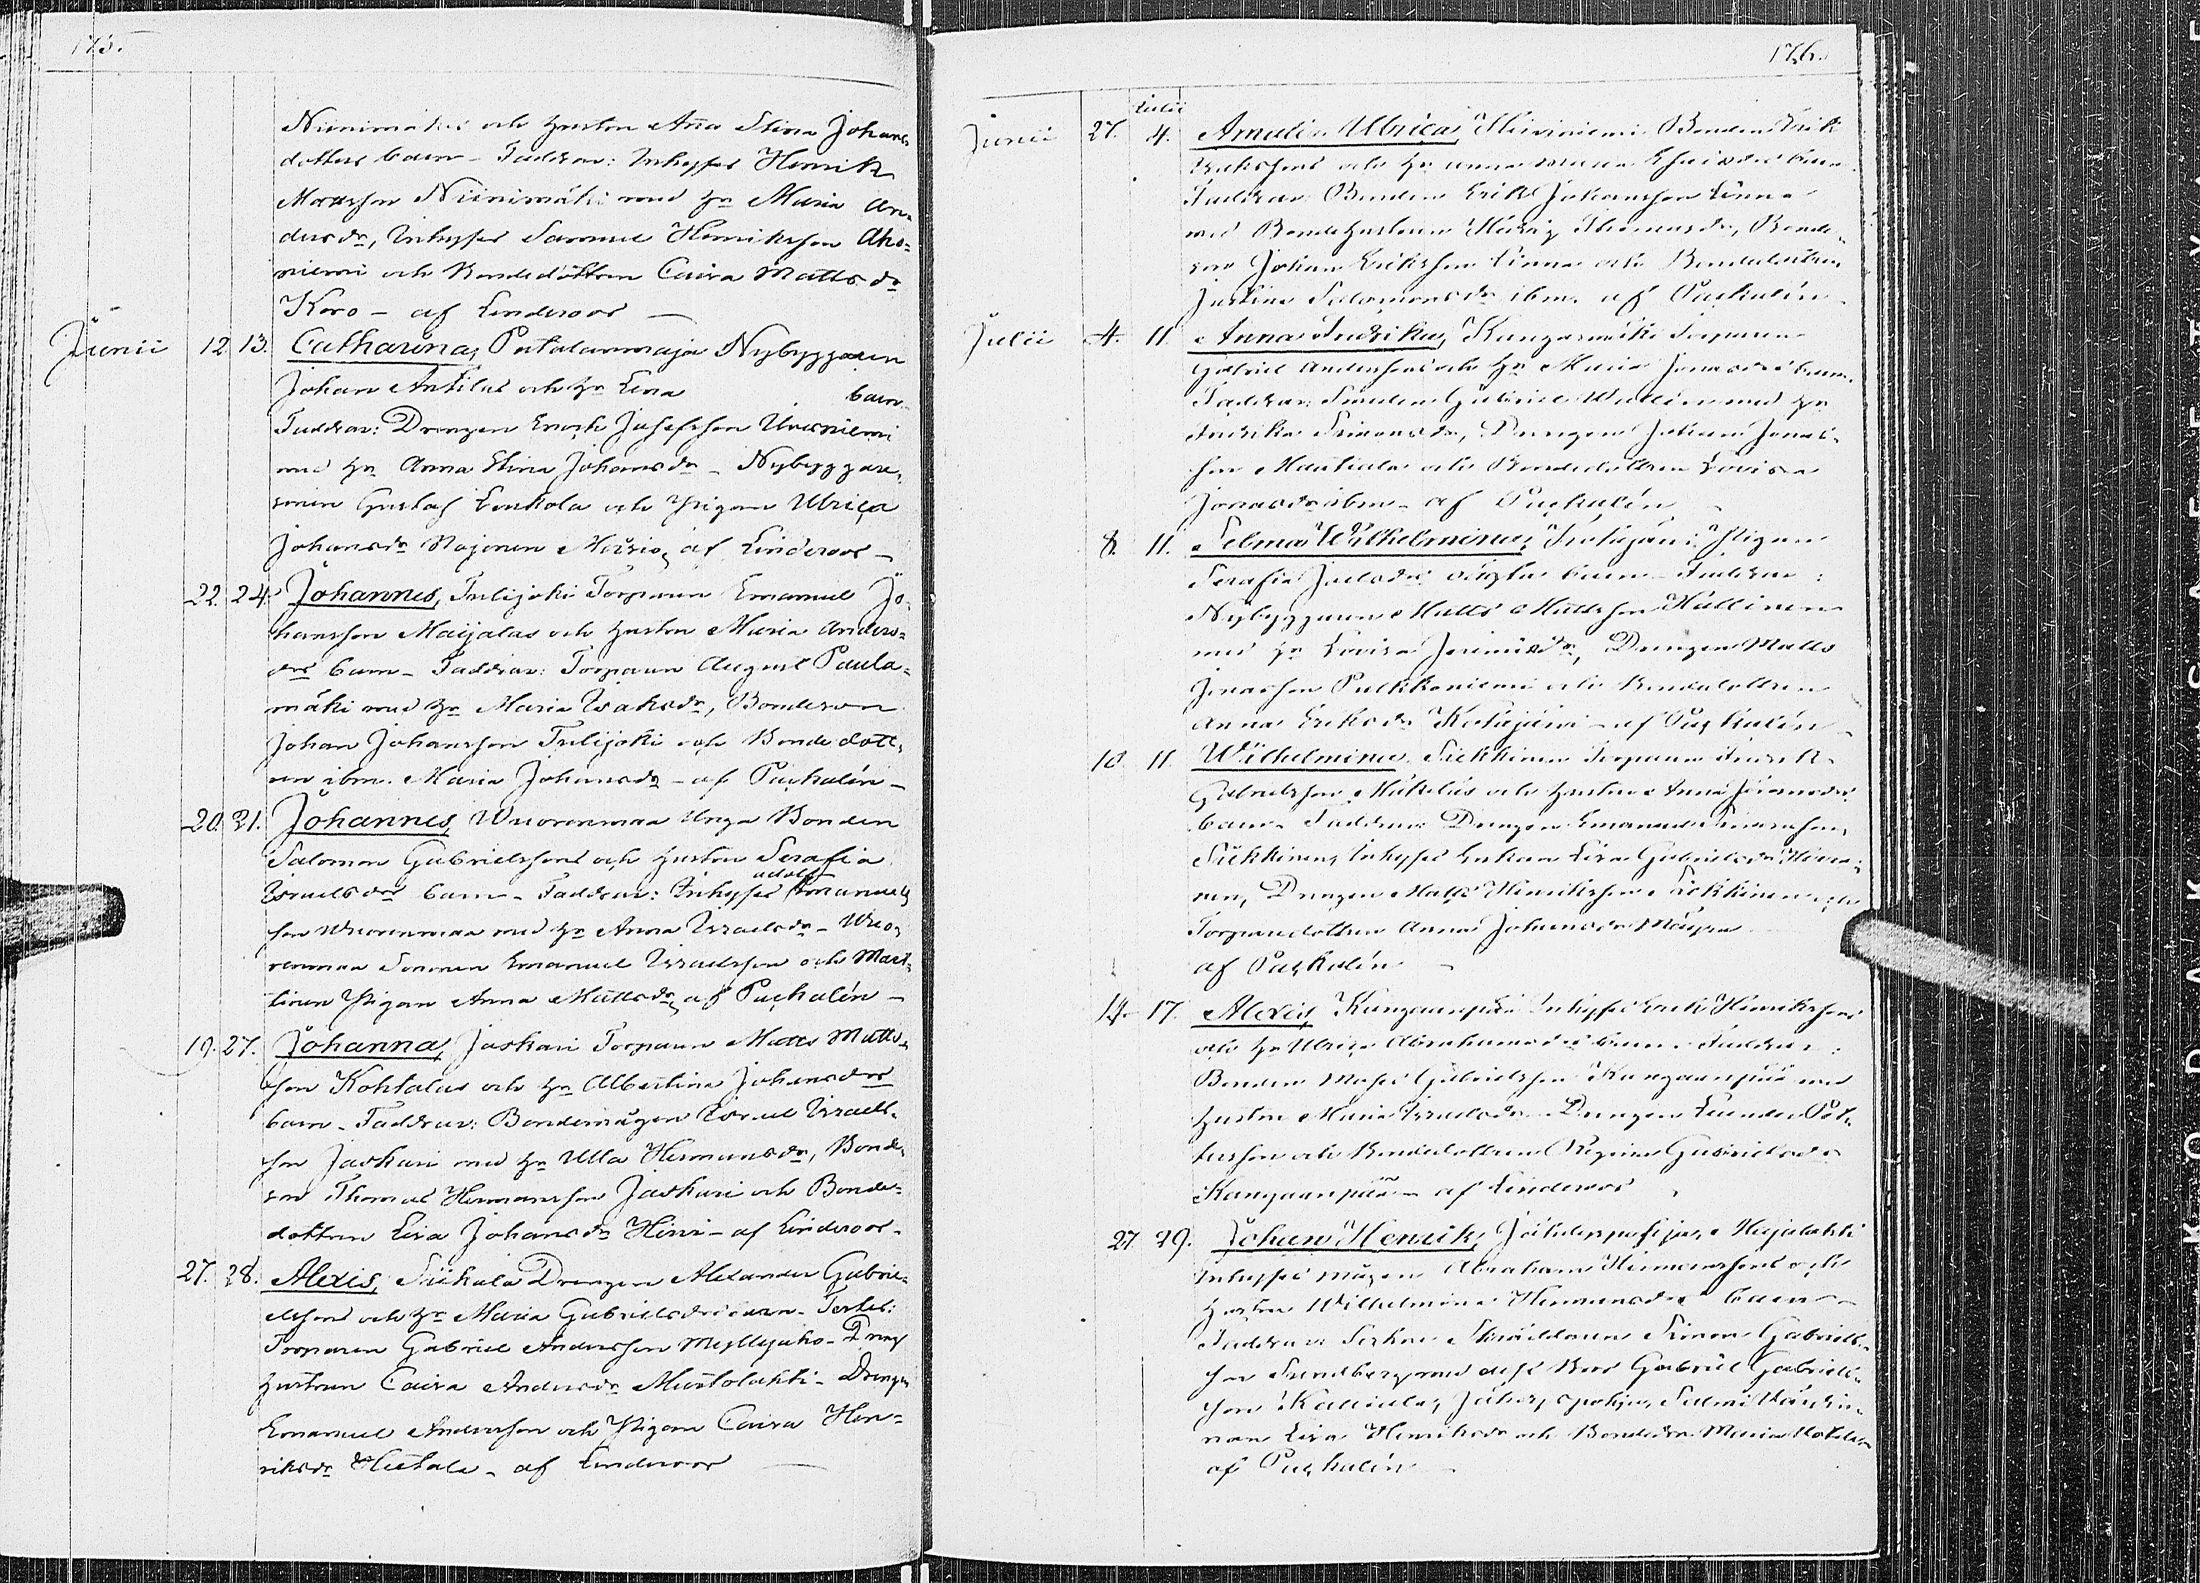 175.
Niinimäkis och hustrun Aña Stina Johans
dotters barn – Faddrar: Inhyses Henrik
Mattsson Niinimäki med hu Maria An-
dersdr, Inhyses Samuel Henriksson Aho-
niemi och Bondedottren Caisa Mattsdr
Koro – af Lindroos –
Junii 12. 13. Catharina, Patalanmaja Nybyggaren
Johan Anttilas och hu Lena barn
Faddrar: Drengen Enok Josefsson Uusniemi
med hu Anna Stina Johansdr – Nybyggare-
sonen Gustaf Lenkola och Pigan Ulrica
Johansdr af Lindroos –
22. 24. Johannes, Tulijoki Torparen Emanuel Jo-
hansson Maijalas och hustrun Maria Anders-
drs barn – Faddrar: Torparen August Paula-
mäki med hu Maria Isaksdr, Bondeson
Johan Johansson Tulijoki och Bondedott-
ren ibm. Maria Johansdr – af Paqvalén –
20. 21. Johannes, Wuorenmaa Unga Bonden
Salomon Gabrielssons och hustrun Serafia
Israelsdrs barn – Faddrar: Inhyses Adolf Emanuels
son Wuorenmaa med hu Anna Israelsdr – Wuo-
renmaa Sonen Emanuel Israelsson och Mart-
tinen Pigan Anna Mattsdr af Paqvalén –
19. 27. Johanna, Jaskari Torparen Matts Matts-
son Kohtalas och hu Albertina Johansdrs
barn – Faddrar: Bondemågen Israel Israels-
son Jaskari med hu Ulla Hermansdr, Bonde-
son Thomas Hermansson Jaskari och Bonde-
dottren Lisa Johansdr Hirvi – af Lindroos –
27. 28. Alexis, Siikala Drengen Alexander Gabri-
elsons och hu Maria Gabrielsdrs barn – Test:
Torparen Gabriel Andersson Myllyaho – Dreng
hustrun Caisa Andersdr Mustolahti – Drengen
Emanuel Andersson och Pigan Caisa Hen-
riksdr Hietala – af Lindroos –
176.
Julii
Junii 27. 4. Amalia Ulrica, Hirviniemi Bonden Erik
Erikssons och hu barn
Faddrar: Bonden Erik Johansson Linna
med Bondehustrun Hedvig Thomasdr, Bonde-
son Johan Eriksson Linna och Bondedottren
Justina Salomonsdr ibm. af Paqvalén –
Julii 4. 11. Anna Fredrika, Kangasmäki Torparen
Gabriel Anderssons och hu Maria Jonasdrs barn
Faddrar: Smeden Gabriel Wallin med hu
Fredrika Simonsdr, Drengen Johan Jonas-
son och Bondedottren Lovisa
Jonasdr ibm – af Paqvalén
8. 11. Selma Wilhelmina, Kotajärvi Pigan
Serafia Joelsdrs oägta barn – Faddrar:
Nybyggaren Matts Mattsson Hallinen
med hu Lovisa Jeremiasdr, Drengen Matts
Jonasson Pulkkaniemi och Bondedottren
Anna Eriksdr Kotajärvi – af Paqvalén –
10. 11. Wilhelmina, Sikkinen Torparen Fredrik
Gabrielsson och hustrun Anna Johansdrs
barn – Faddrar: Drengen Emanuel
Sikkinen, Inhyses Enkan Lisa Gabrielsdr
nen, Drengen Matts Henriksson Sikkinen och
Torparedottren Anna Johansdr
af Paqvalén –
14. 17. Alexis, Kangaanpää Inhyses Erik Henrikssons
och hu Ulrica Abrahamsdrs barn – Faddrar:
Bonden Moses Gabrielsson Kangaanpää med
hustrun Maria Israelsdr – Drengen Leander Pet-
tersson och Bondedottren Regina Gabrielsdr
Kangaanpää – af Lindroos
27. 29. Johan Henrik, Majalahti
Inhyses mågen Abraham Hermanssons och
hustrun Wilhelmina Hermansdrs barn –
Faddrar: Sockne Skräddaren Simon Gabriels-
son Sundberg med dess Bror Gabriel Gabriels-
son
nan Lisa Henriksdr och Bondedr Maria
af Paqvalén –
KODAK SAFETY